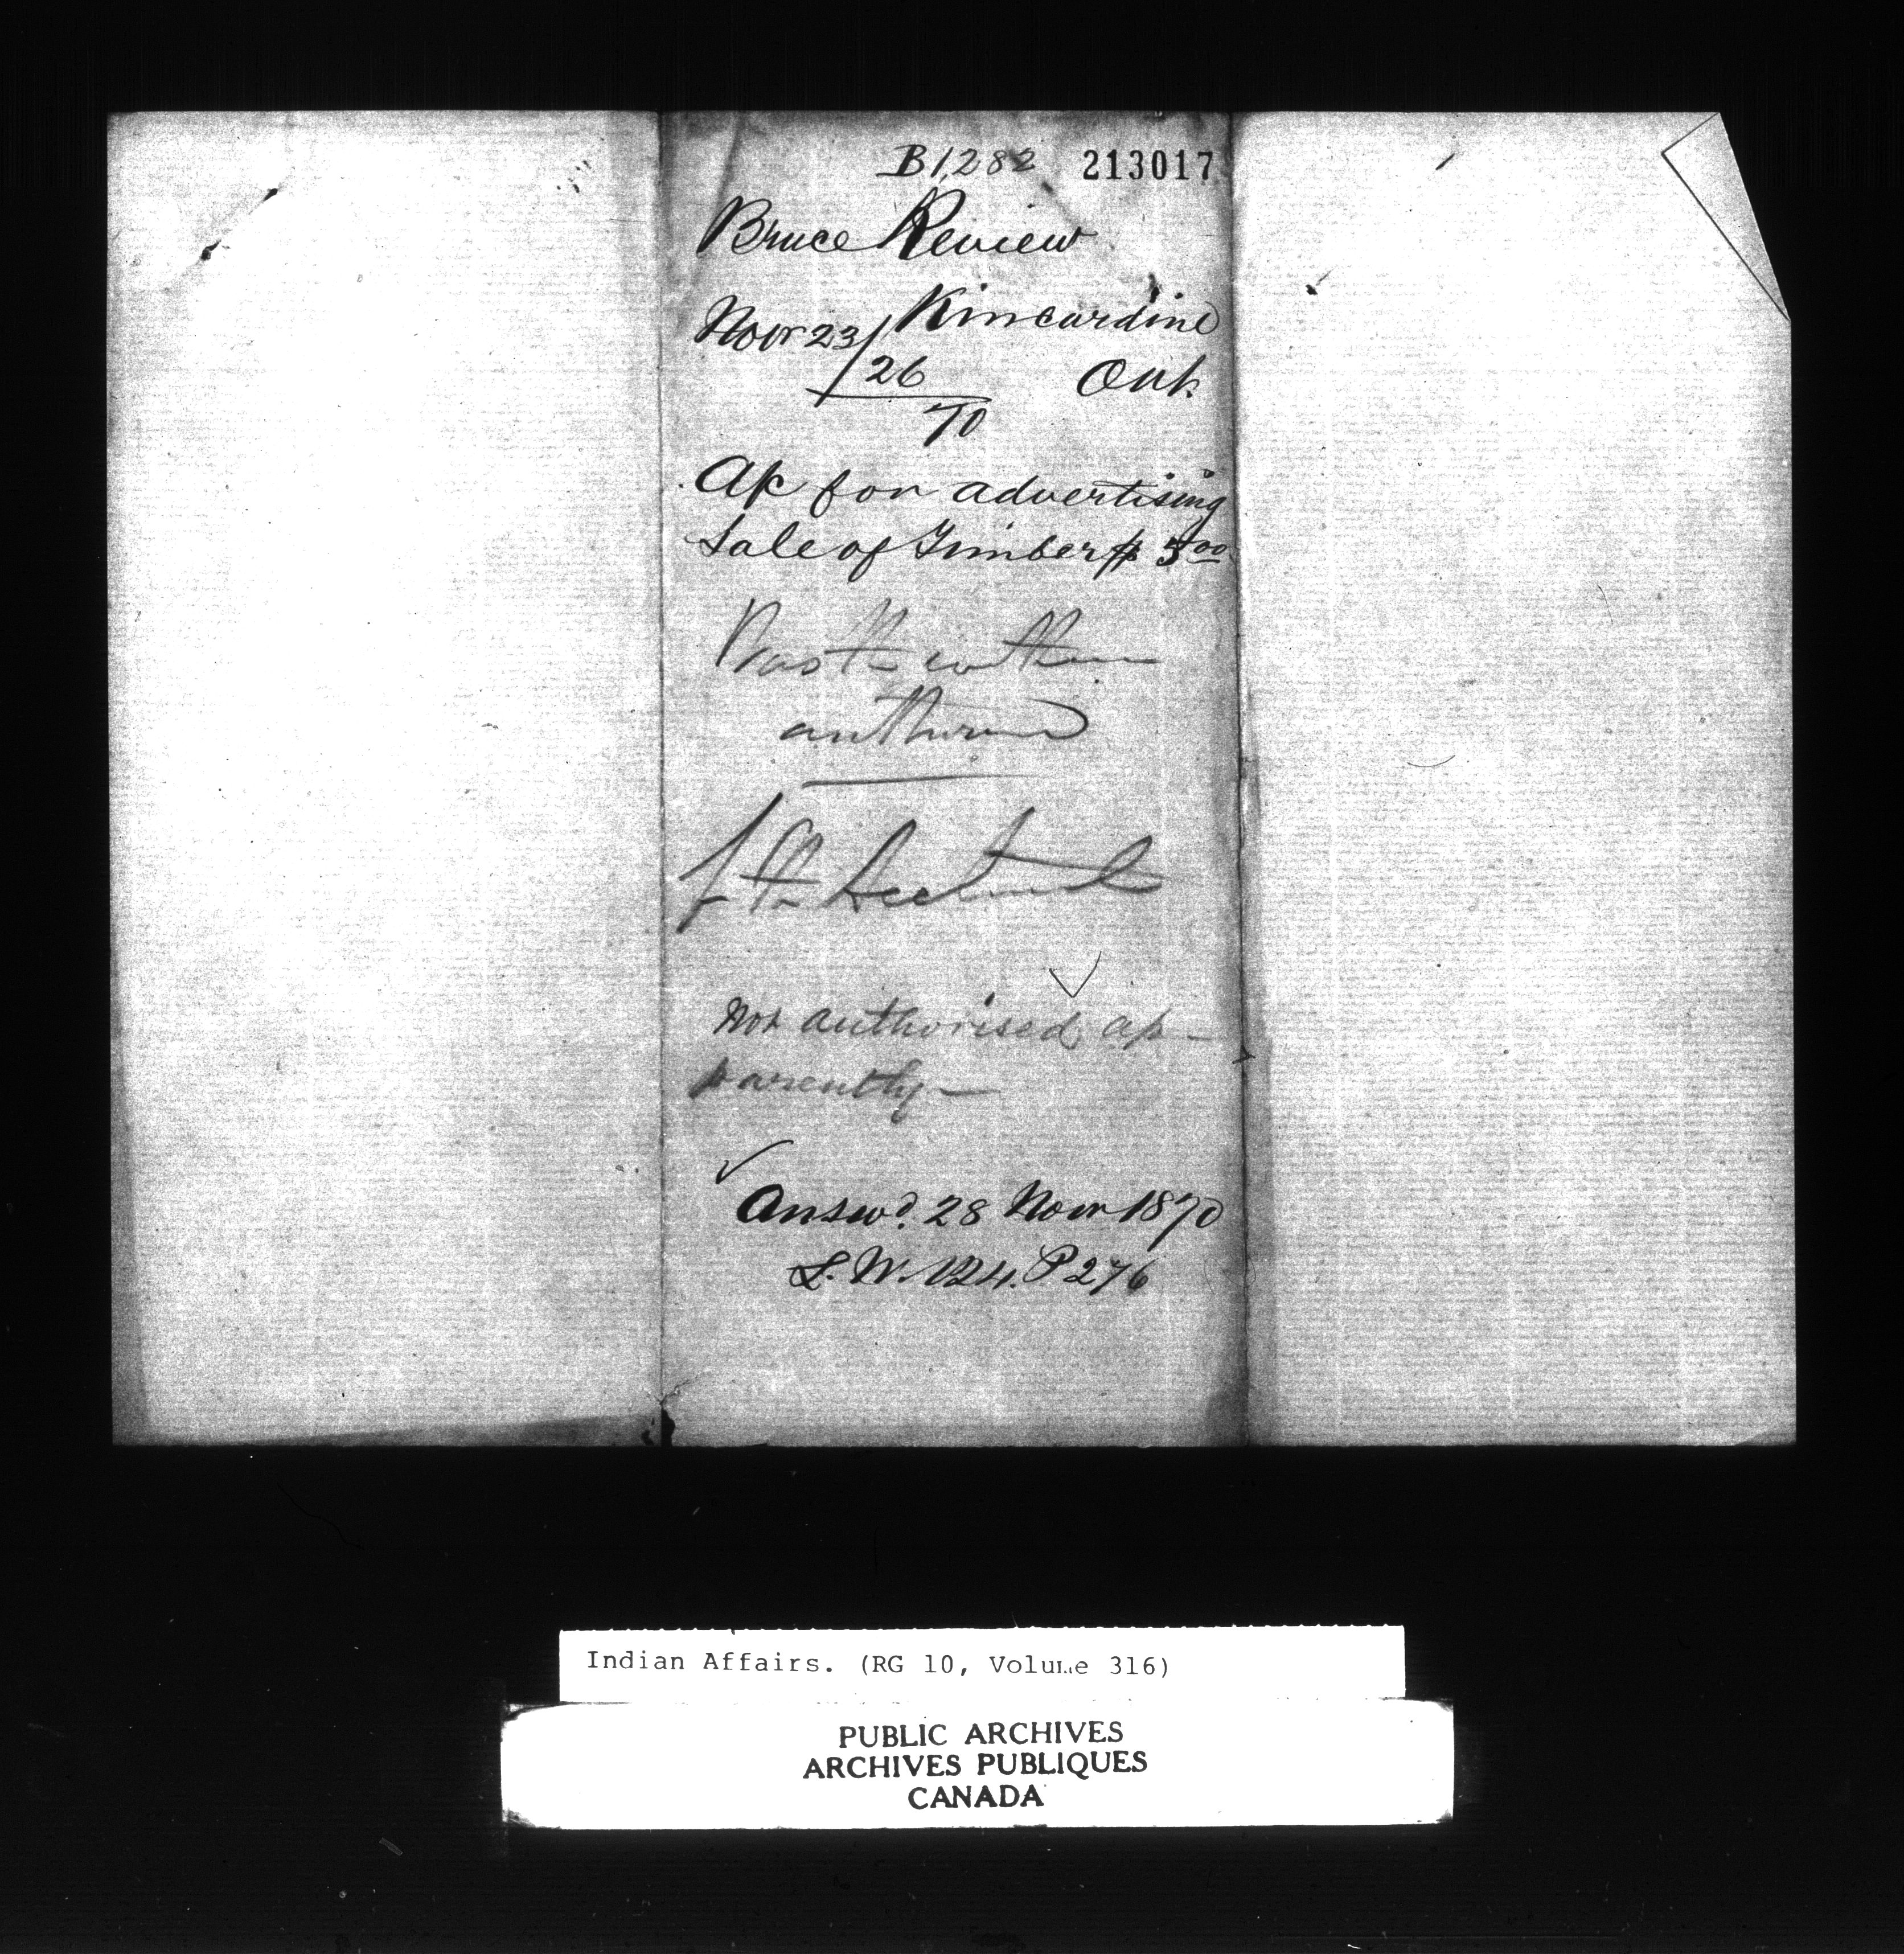 B1,282 213017
Bruce Review
Novr 23/26 Kincardine
70 Ont.
A/c for advertising
Sale of Timber $5.00
Was the within
authorized
Not authorised ap-
parently—
Answd. 28 Novr 1870
L.W. 124. P 276
Indian Affairs. (RG 10, Volume 316)
PUBLIC ARCHIVES
ARCHIVES PUBLIQUES
CANADA